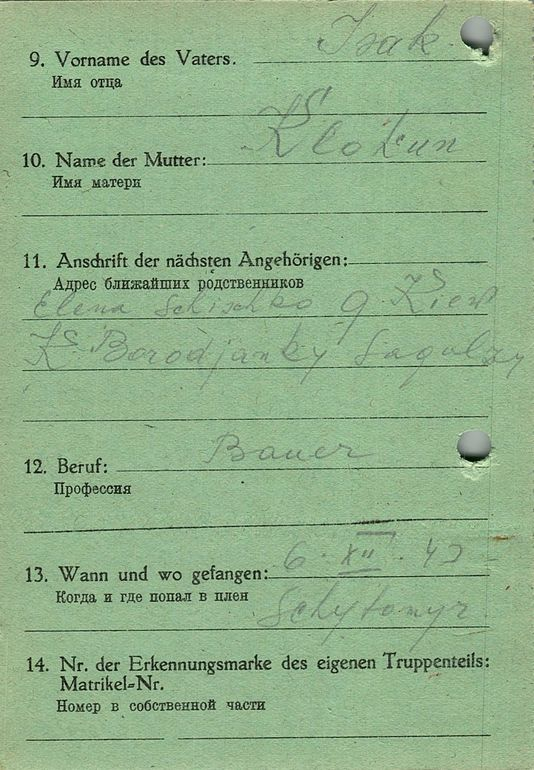 Isak
9. Vorname des Vaters.
Имя отца
Klokun
10. Name der Mutter:
Имя матери
11. Anschrift der nächsten Angehörigen:
Адрес ближайших родственников
Elena Schischko g. Kiew
Borodjanky
12. Beruf: Bauer
Профессия
6. XII. 43
13. Wann und wo gefangen:
Когда и где попал в плен
Schytomyr
14. Nr. der Erkennungsmarke des eigenen Truppenteils:
Matrikel-Nr.
Номер в собственной части